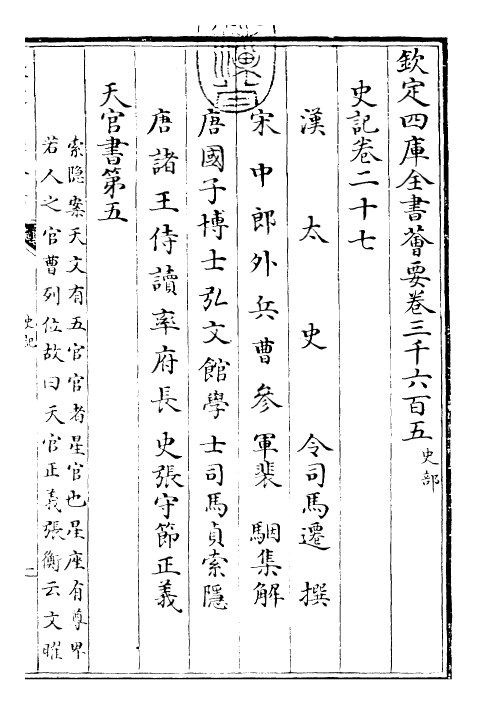 欽定四庫全書薈要卷三千六百五 史部
史記卷二十七
漢太史令司馬遷撰
宋中郎外兵曹參軍裴駰集解
唐國子博士弘文館學士司馬貞索隱
唐諸王侍讀率府長史張守節正義
天官書第五
索隐案天文有五官官者星官也星座有尊卑
若人之官曹列位故曰天官正義張衡云文曜
史記